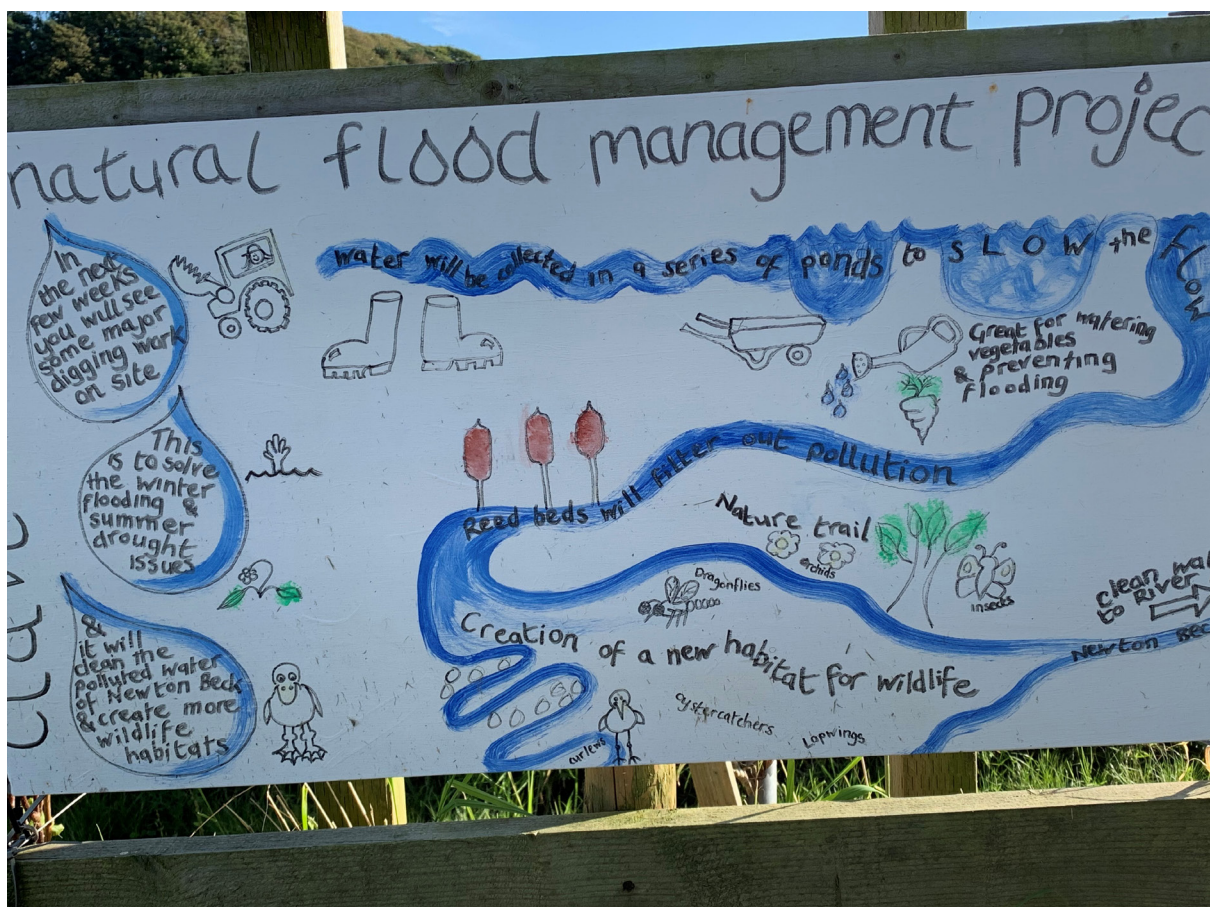 natural flood management projec
In
the next
few weeks
you will see
some major
digging work
on site
This
is to solve
the winter
flooding &
summer
drought
issues
&
it will
clean the
polluted water
of Newton Beck
& create more
wildlife
habitats
water will be collected in a series of ponds to SLOW the
flow
Great for watering
vegetables
& preventing
flooding
Reed beds will filter out pollution
Nature trail
orchids
insects
Dragonflies
Clean wat
to River
Newton Bec
Creation of a new habitat for wildlife
oystercatchers
Lapwings
curlews